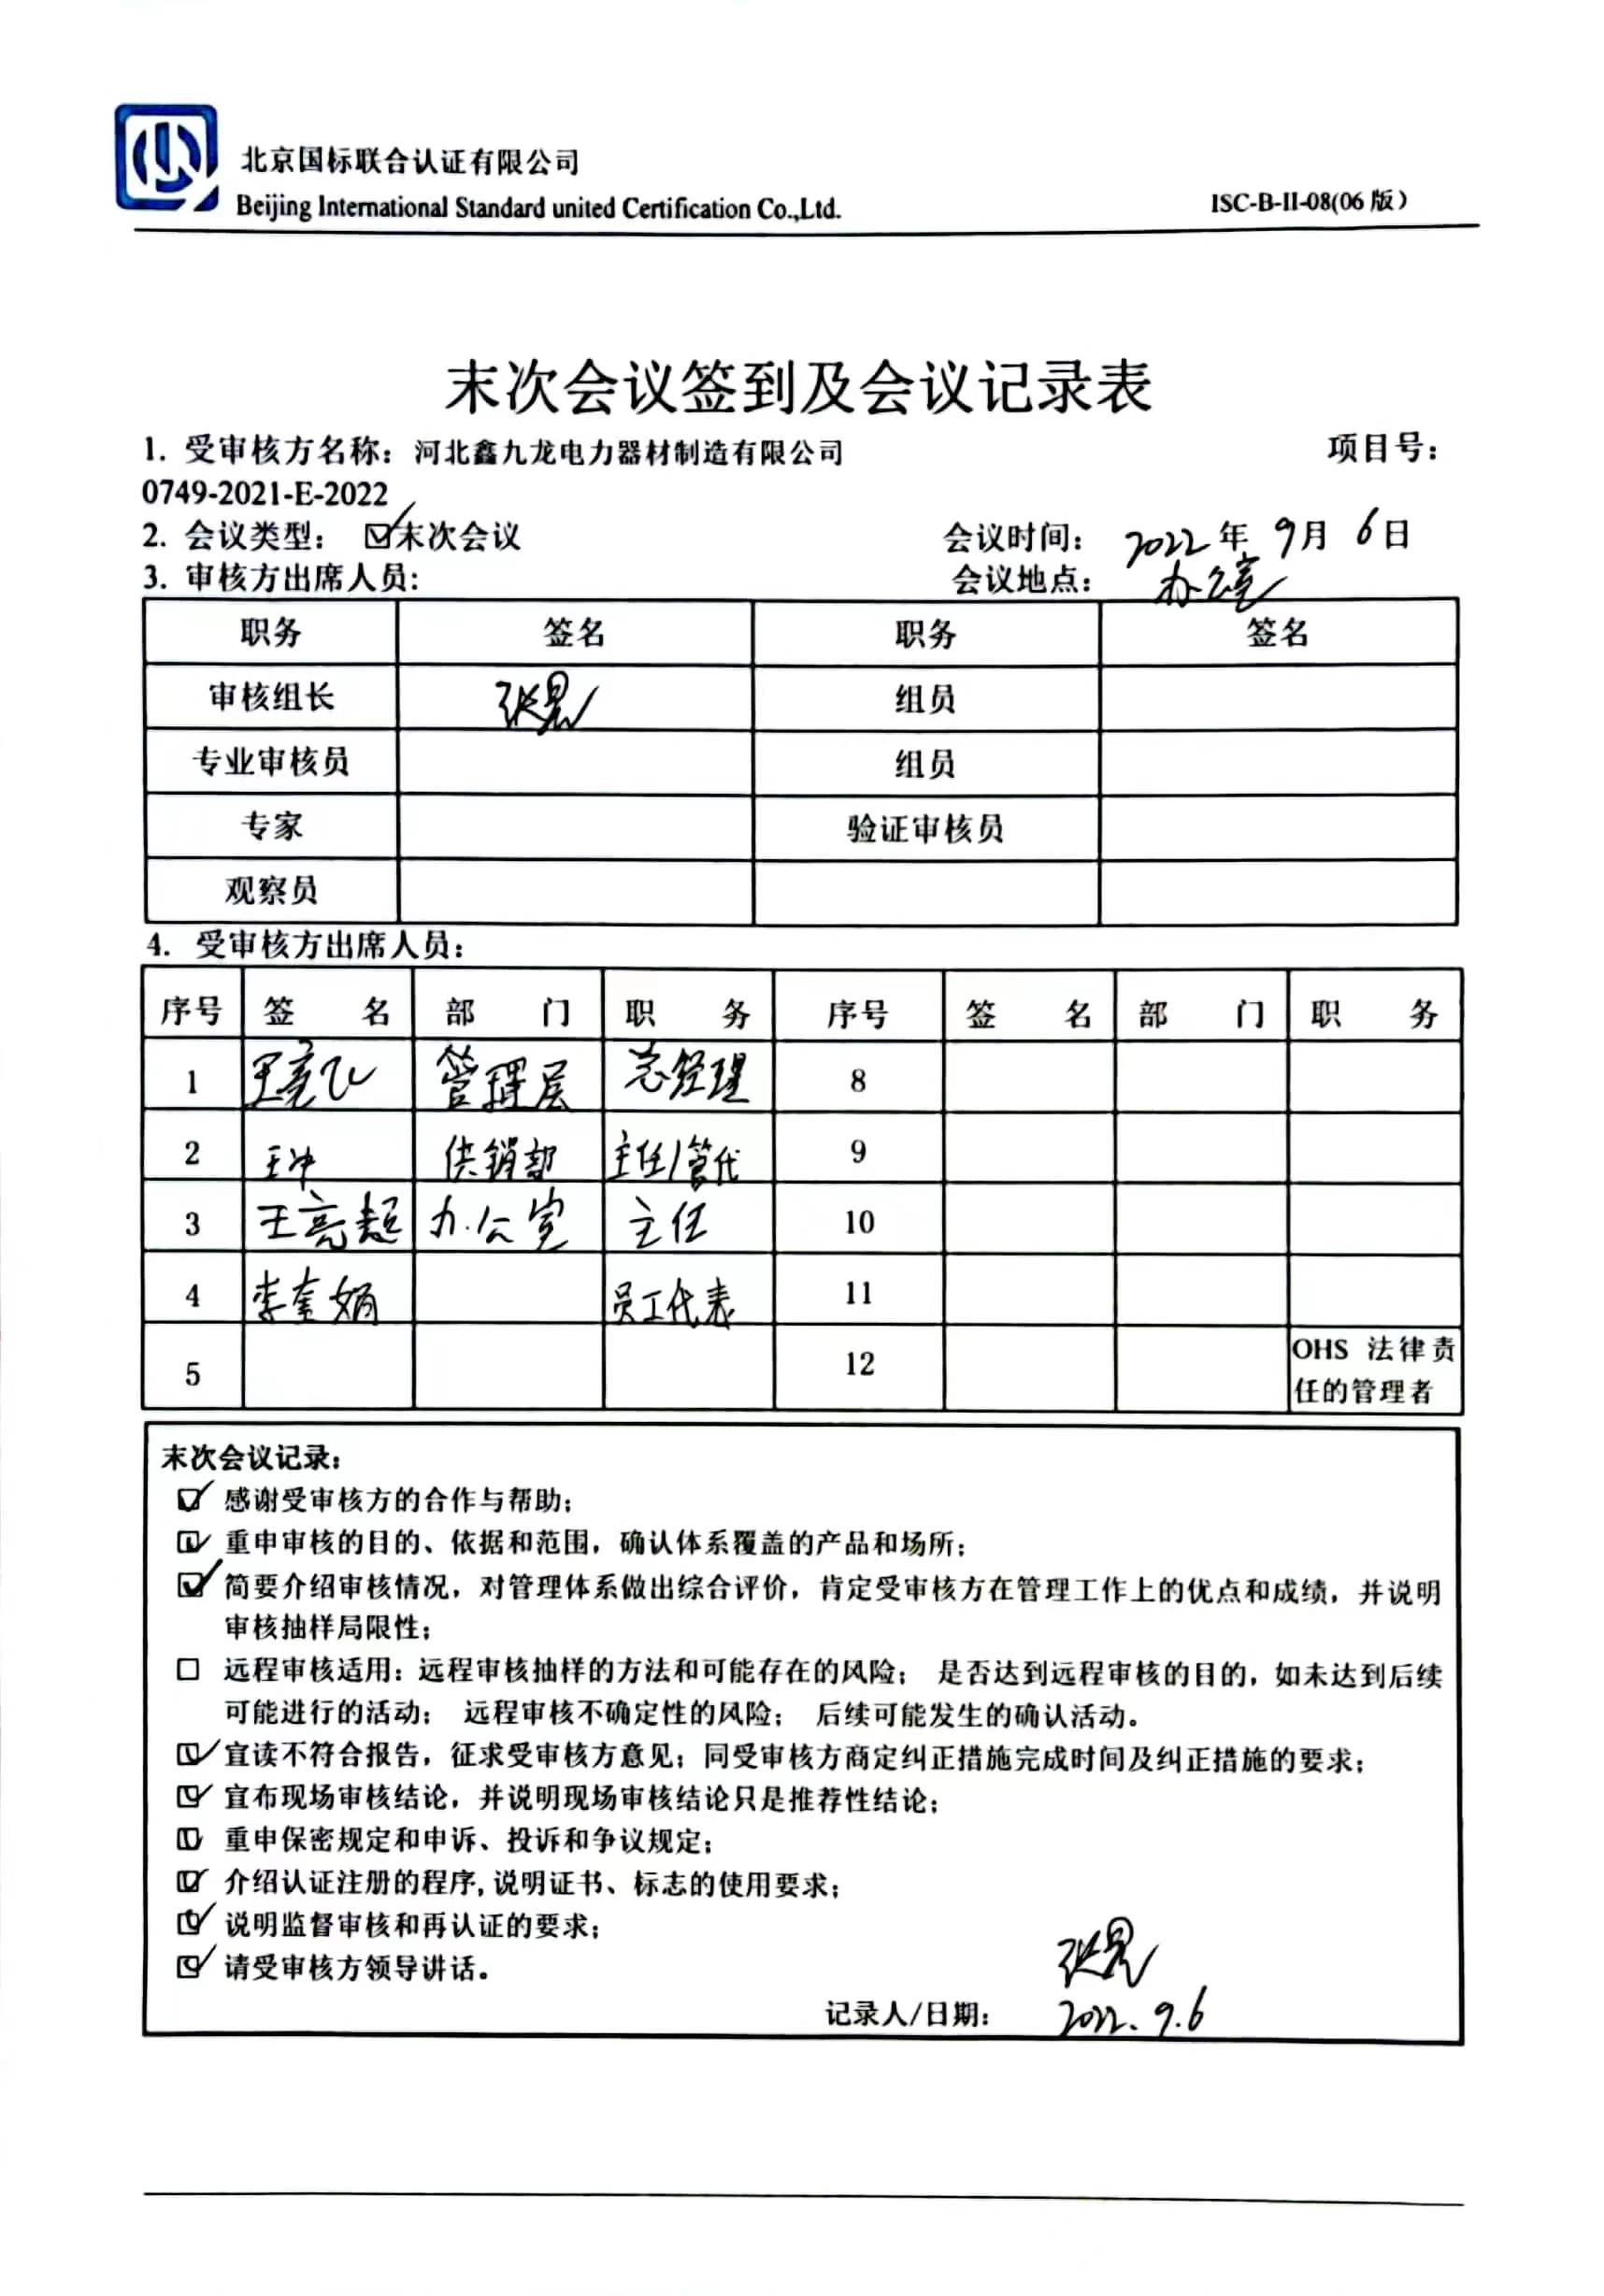 北京国标联合认证有限公司
Beijing International Standard united Certification Co.,Ltd.
ISC-B-II-08(06 版)
末次会议签到及会议记录表
1. 受审核方名称：河北鑫九龙电力器材制造有限公司 项目号：
0749-2021-E-2022
2. 会议类型： ☑末次会议 会议时间： 2022 年 9月 6日
3. 审核方出席人员： 会议地点： 办公室
职务 签名 职务 签名
审核组长 组员
专业审核员 组员
专家 验证审核员
观察员
4. 受审核方出席人员：
序号 签 名 部 门 职 务 序号 签 名 部 门 职 务
1 王亮飞 管理层 总经理 8
2 王冲 供销部 主任/管代 9
3 王亮超 办公室 主任 10
4 李奎娟 员工代表 11
5 12 OHS 法律责
任的管理者
末次会议记录：
☑ 感谢受审核方的合作与帮助；
☑ 重申审核的目的、依据和范围，确认体系覆盖的产品和场所；
☑ 简要介绍审核情况，对管理体系做出综合评价，肯定受审核方在管理工作上的优点和成绩，并说明
审核抽样局限性；
□ 远程审核适用：远程审核抽样的方法和可能存在的风险； 是否达到远程审核的目的，如未达到后续
可能进行的活动； 远程审核不确定性的风险； 后续可能发生的确认活动。
☑ 宣读不符合报告，征求受审核方意见；同受审核方商定纠正措施完成时间及纠正措施的要求；
☑ 宣布现场审核结论，并说明现场审核结论只是推荐性结论；
☑ 重申保密规定和申诉、投诉和争议规定；
☑ 介绍认证注册的程序,说明证书、标志的使用要求；
☑ 说明监督审核和再认证的要求；
☑ 请受审核方领导讲话。
记录人/日期： 2022. 9.6